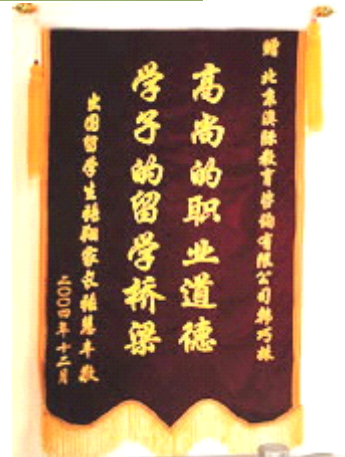 赠 北京澳际教育咨询有限公司韩巧妹
高尚的职业道德
学子的留学桥梁
出国留学生 翔家长 慧丰敬
二〇〇四年十二月